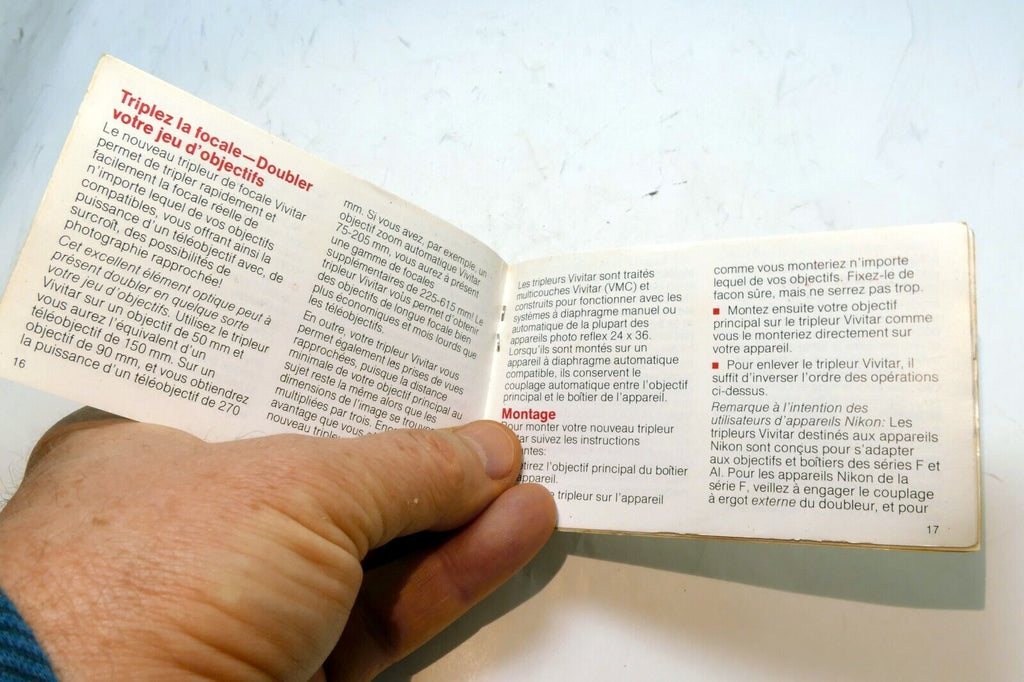 Triplez la focale—Doubler
votre jeu d'objectifs
Le nouveau tripleur de focale Vivitar
permet de tripler rapidement et
facilement la focale réelle de
n'importe lequel de vos objectifs
compatibles, vous offrant ainsi la
puissance d'un téléobjectif avec, de
surcroît, des possibilités de
photographie rapprochée!
Cet excellent élément optique peut à
présent doubler en quelque sorte
votre jeu d'objectifs. Utilisez le tripleur
Vivitar sur un objectif de 50 mm et
vous aurez l'équivalent d'un
téléobjectif de 150 mm. Sur un
objectif de 90 mm, et vous obtiendrez
la puissance d'un téléobjectif de 270
16
mm. Si vous avez, par exemple, un
objectif zoom automatique Vivitar
75-205 mm, vous aurez à présent
une gamme de focales
supplémentaires de 225-615 mm! Le
tripleur Vivitar vous permet d'obtenir
des objectifs de longue focale bien
plus économiques et moins lourds que
les téléobjectifs.
En outre, votre tripleur Vivitar vous
permet également les prises de vues
rapprochées, puisque la distance
minimale de votre objectif principal au
sujet reste la même alors que les
dimensions de l'image se trouvent
multipliées par trois.
avantage que vous
nouveau
Les tripleurs Vivitar sont traités
multicouches Vivitar (VMC) et
construits pour fonctionner avec les
systèmes à diaphragme manuel ou
automatique de la plupart des
appareils photo reflex 24 x 36.
Lorsqu'ils sont montés sur un
appareil à diaphragme automatique
compatible, ils conservent le
couplage automatique entre l'objectif
principal et le boîtier de l'appareil.
Montage
Pour monter votre nouveau tripleur
suivez les instructions
l'objectif principal du boîtier
tripleur sur l'appareil
comme vous monteriez n'importe
lequel de vos objectifs. Fixez-le de
façon sûre, mais ne serrez pas trop.
■ Montez ensuite votre objectif
principal sur le tripleur Vivitar comme
vous le monteriez directement sur
votre appareil.
■ Pour enlever le tripleur Vivitar, il
suffit d'inverser l'ordre des opérations
ci-dessus.
Remarque à l'intention des
utilisateurs d'appareils Nikon: Les
tripleurs Vivitar destinés aux appareils
Nikon sont conçus pour s'adapter
aux objectifs et boîtiers des séries F et
AI. Pour les appareils Nikon de la
série F, veillez à engager le couplage
à ergot externe du doubleur, et pour
17